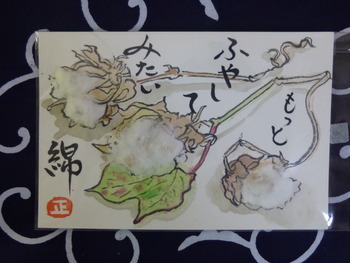 もっと
ふやし
て
みたい
綿
正